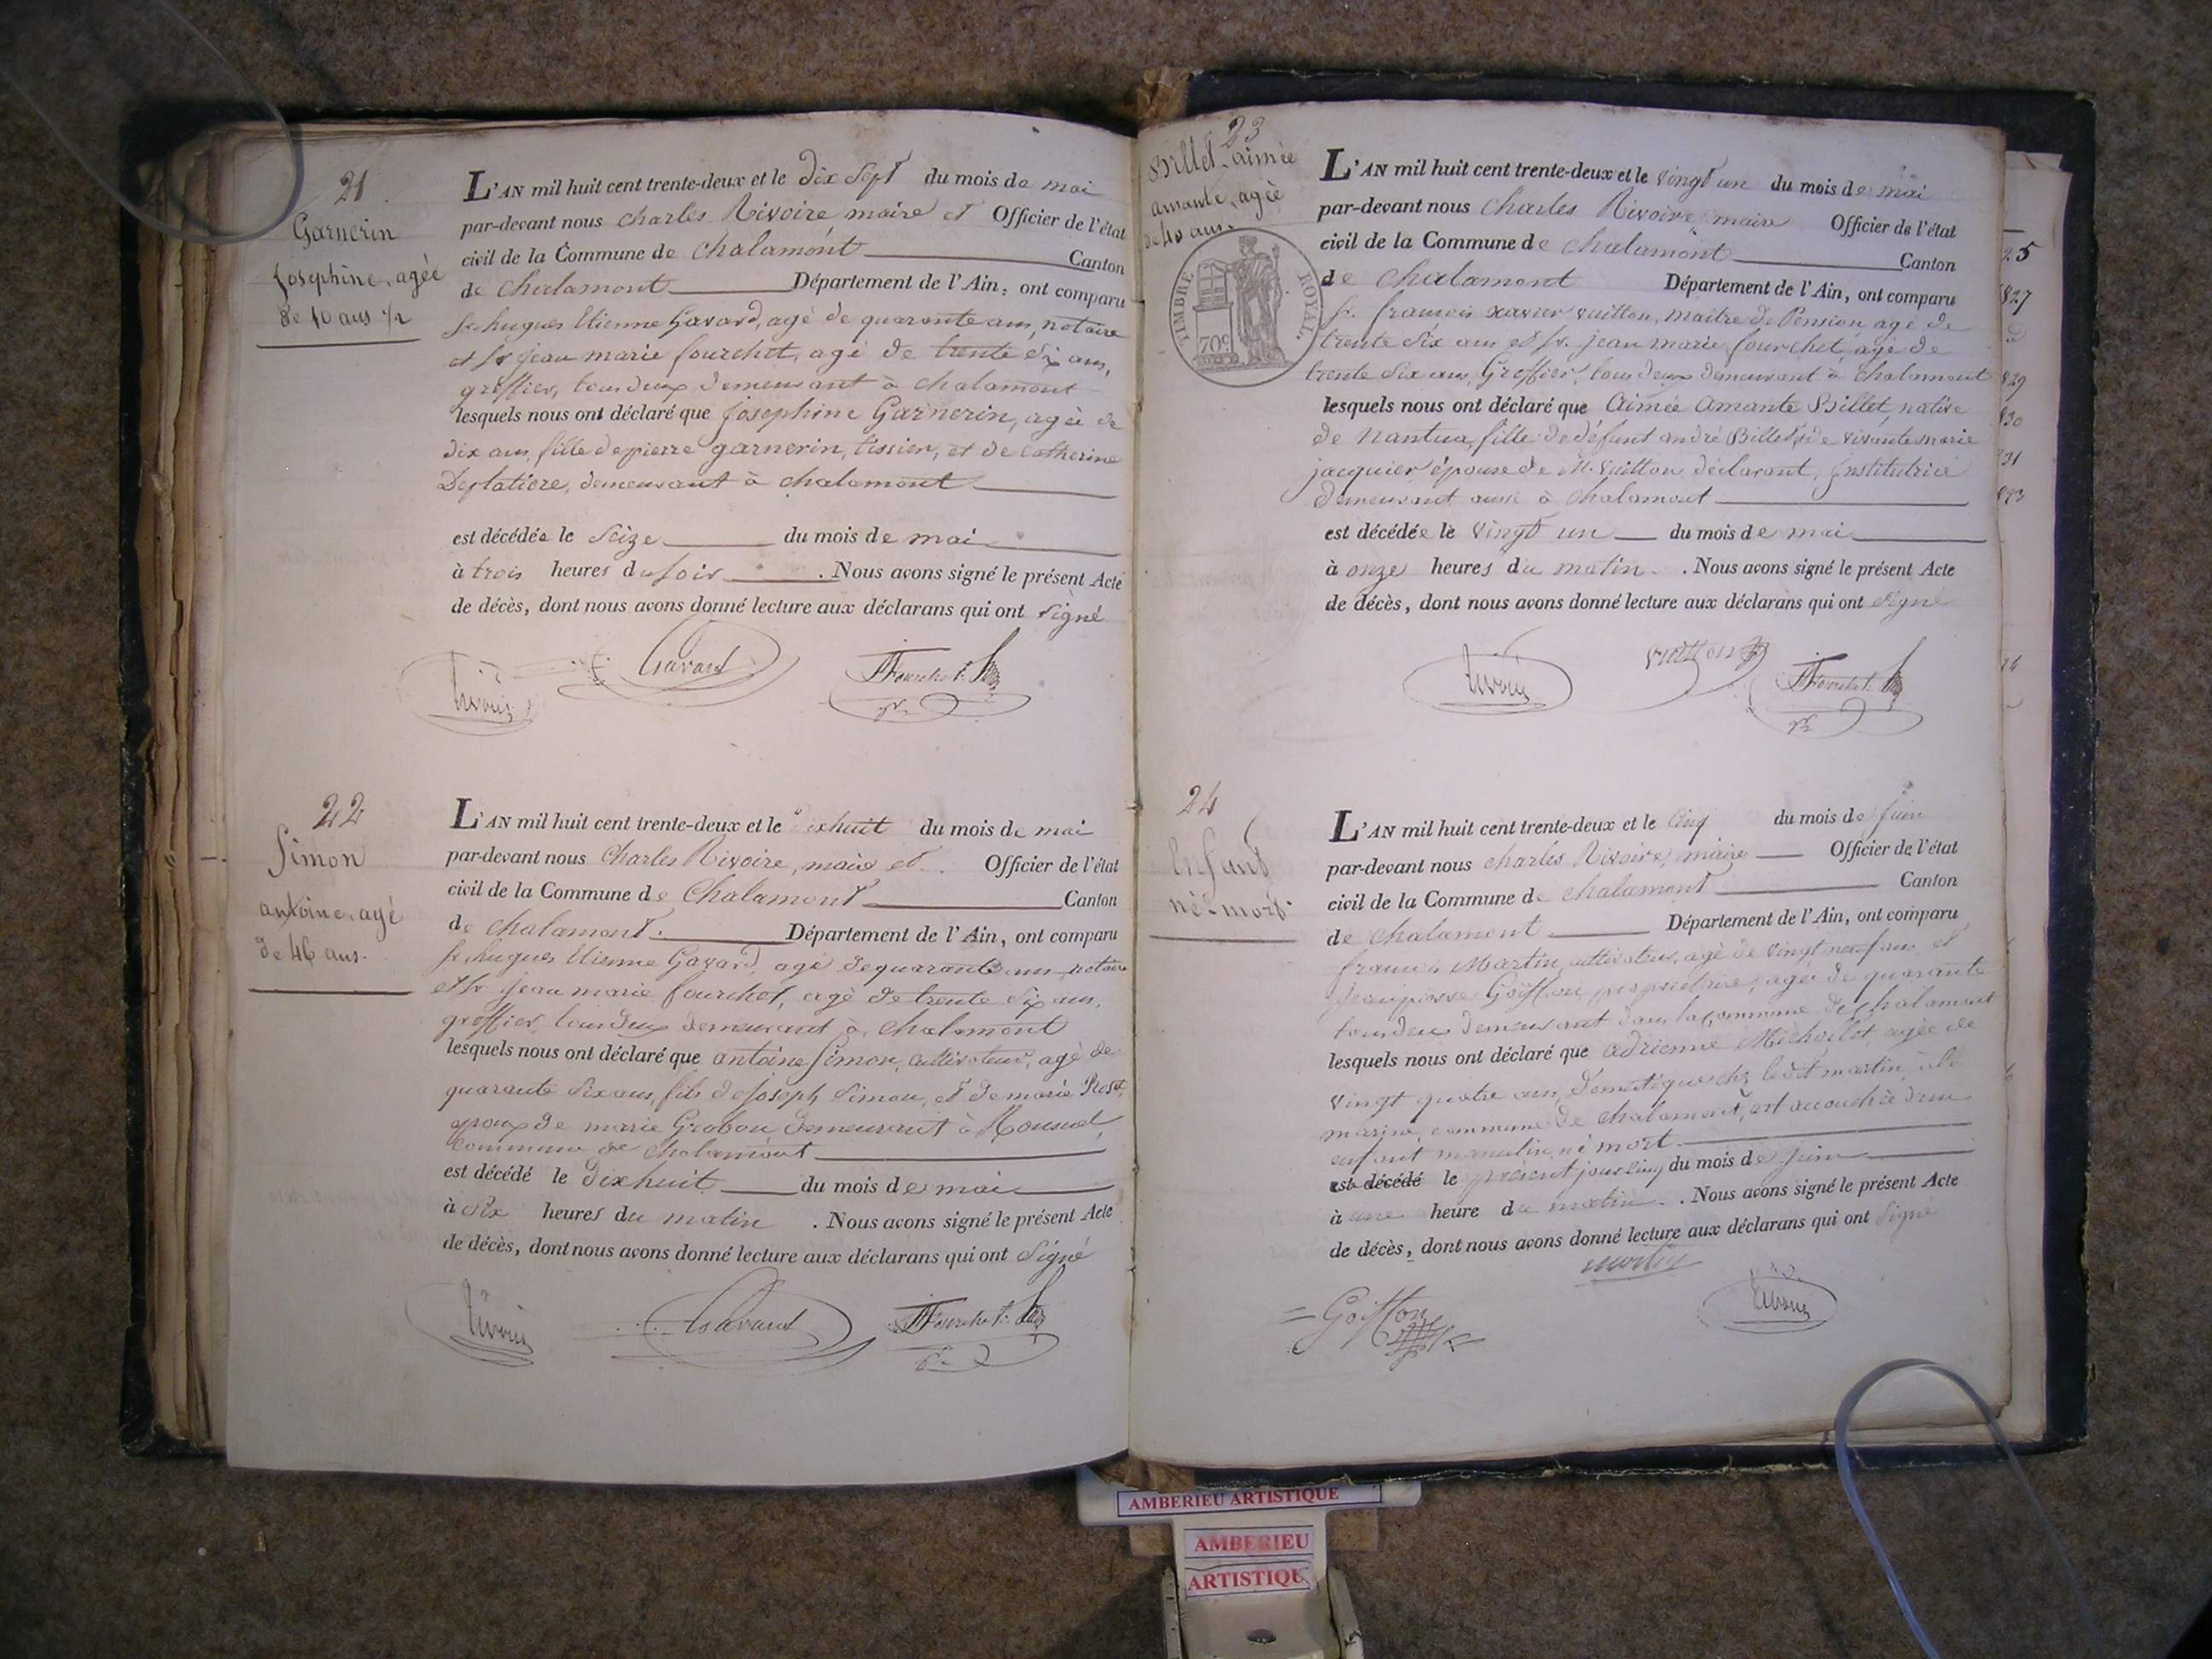 21
Garnerin
Josephine, agée
de 10 ans 1/2
L'AN mil huit cent trente-deux et le dix sept du mois de mai
par-devant nous charles Rivoire maire et Officier de l'état
civil de la Commune de chalamont Canton
de chalamont Département de l'Ain, ont comparu
sr. hugues Etienne Gavard, agé de quarante ans, notaire
et sr jean marie fourchet, agé de trente six ans,
greffier, tous deux demeurant à chalamont
lesquels nous ont déclaré que josephine Garnerin, agée de
dix ans, fille de pierre garnerin, tissier, et de catherine
demeurant à chalamont
est décédée le seize du mois de mai
à trois heures du soir . Nous avons signé le présent Acte
de décès, dont nous avons donné lecture aux déclarans qui ont signé
Rivoire Gavard JFourchet
22
Simon
antoine, agé
de 46 ans.
L'AN mil huit cent trente-deux et le dixhuit du mois de mai
par-devant nous Charles Rivoire, maire et Officier de l'état
civil de la Commune de Chalamont Canton
de chalamont. Département de l'Ain, ont comparu
sr. hugues Etienne Gavard, agé de quarante ans, notaire
et sr jean marie fourchet, agé de trente six ans,
greffier, tous deux demeurant à chalamont
lesquels nous ont déclaré que antoine Simon, cultivateur, agé de
quarante six ans, fils de joseph Simon, et de marie
epoux de marie Grobon demeurant à
commune de chalamont
est décédé le dixhuit du mois de mai
à six heures du matin . Nous avons signé le présent Acte
de décès, dont nous avons donné lecture aux déclarans qui ont signé
Rivoire Gavard JFourchet
23
Billet, aimée
amante, agée
de 40 ans.
TIMBRE ROYAL.
70c
L'AN mil huit cent trente-deux et le vingt un du mois de mai
par-devant nous Charles Rivoire, maire Officier de l'état
civil de la Commune de chalamont Canton
de chalamont Département de l'Ain, ont comparu
sr. francois xavier vuitton, maitre de Pension, agé de
trente six ans et sr. jean marie fourchet, agé de
trente six ans, Greffier, tous deux demeurant à chalamont
lesquels nous ont déclaré que Aimée Amante Billet, native
de Nantua, fille de défunt andré Billet et de vivante marie
jacquier épouse de M. vuitton, déclarant, Institutrice
demeurant aussi à chalamont
est décédée le vingt un du mois de mai
à onze heures du matin . Nous avons signé le présent Acte
de décès, dont nous avons donné lecture aux déclarans qui ont signé
Rivoire vuitton JFourchet
24
Enfant
né-mort
L'AN mil huit cent trente-deux et le cinq du mois de juin
par-devant nous charles Rivoire, maire Officier de l'état
civil de la Commune de chalamont Canton
de chalamont Département de l'Ain, ont comparu
francois Martin, cultivateur, agé de vingt neuf ans, et
Goiffon, propriétaire, agé de quarante
tous deux demeurant dans la commune de chalamont
lesquels nous ont déclaré que adrienne Michollet, agée de
vingt quatre ans, domestique chez ledit martin à la
commune de chalamont, est accouchée d'un
enfant masculin, né mort
est décédé le présent jour cinq du mois de juin
à une heure du matin . Nous avons signé le présent Acte
de décès, dont nous avons donné lecture aux déclarans qui ont signé
martin
Goiffon Rivoire
AMBERIEU ARTISTIQUE
AMBERIEU
ARTISTIQUE